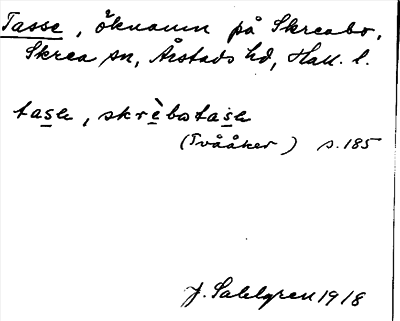 Tasse, öknamn på Skreabo,
Skrea sn, Årstads hd, Hall. l.
tasɘ, skrèbotasɘ
(Tvååker) s. 185
J. Sahlgren 1918